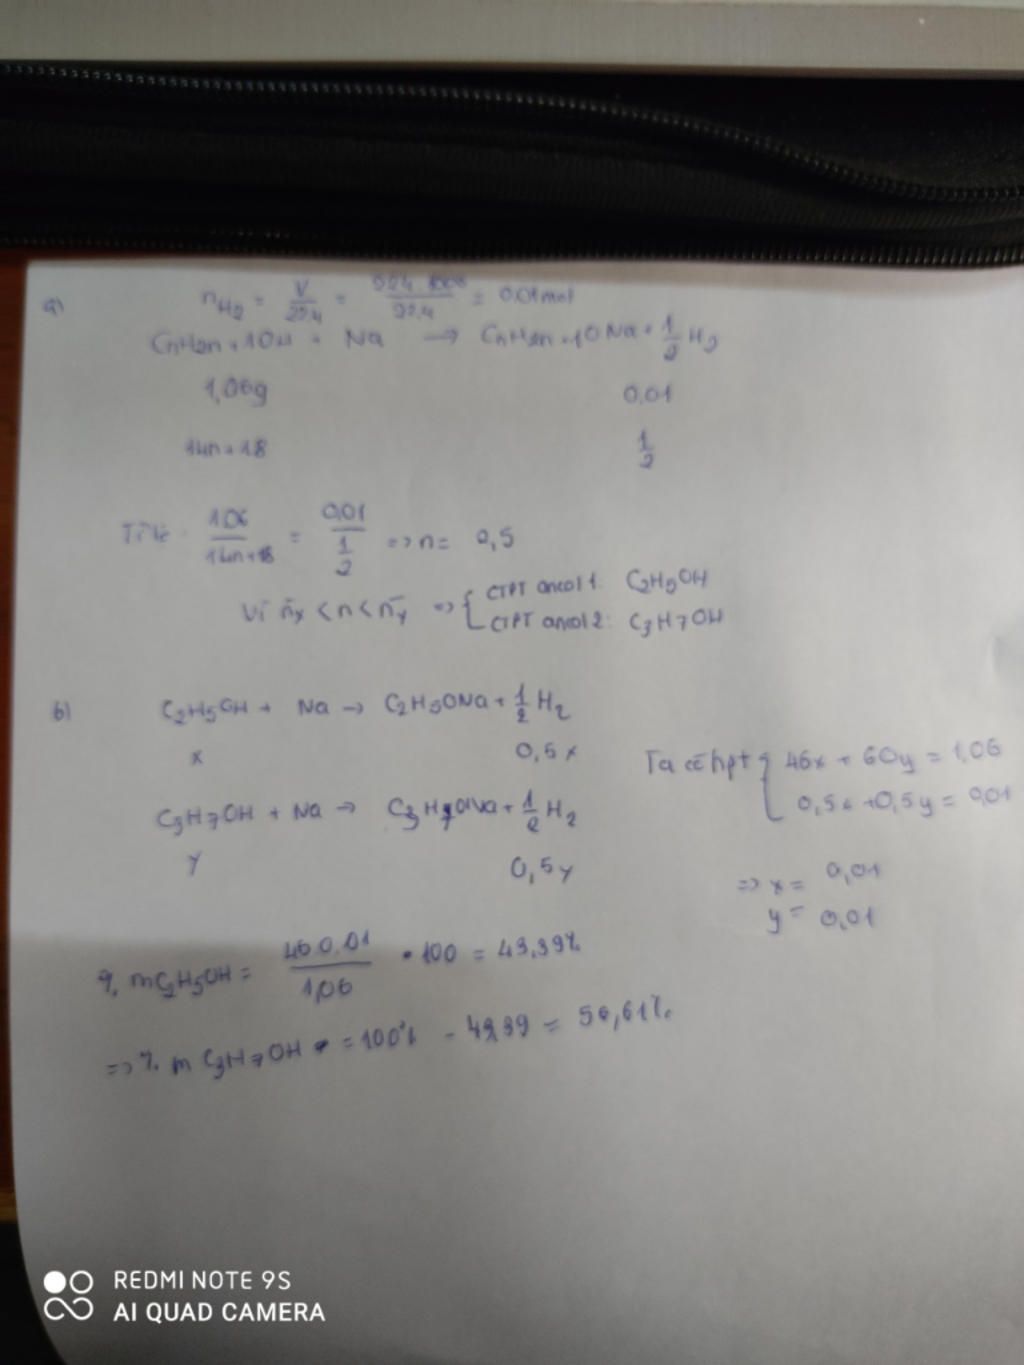 a) nH2 = V/22,4 = 224:1000/22,4 = 0,01mol
CnH2n+1OH + Na → CnH2n+1ONa + 1/2 H2
1,06g 0,01
14n+18 1/2
Tỉ lệ: 1,06/14n+18 = 0,01/1/2 => n = 0,5
Vì n̄x < n < n̄y => { CTPT ancol 1: C2H5OH
CTPT ancol 2: C3H7OH
b) C2H5OH + Na → C2H5ONa + 1/2 H2
x 0,5x
C3H7OH + Na → C3H7ONa + 1/2 H2
y 0,5y
Ta có hpt { 46x + 60y = 1,06
0,5x + 0,5y = 0,01
=> x = 0,01
y = 0,01
% mC2H5OH = 46.0,01/1,06 • 100 = 43,39%
=> % m C3H7OH = 100% - 43,39 = 56,61%.
REDMI NOTE 9S
AI QUAD CAMERA